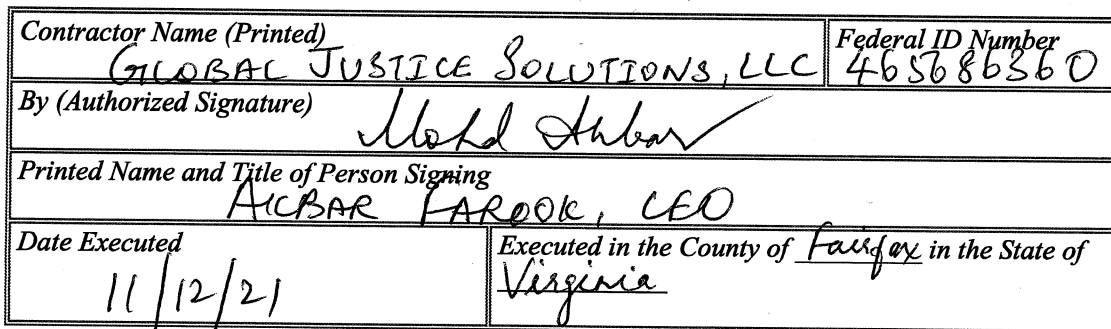 Contractor Name (Printed) Federal ID Number
GLOBAL JUSTICE SOLUTIONS, LLC 465686360
By (Authorized Signature)
Mohd Akbar
Printed Name and Title of Person Signing
AKBAR FAROOK, CEO
Date Executed Executed in the County of Fairfax in the State of
11/12/21 Virginia